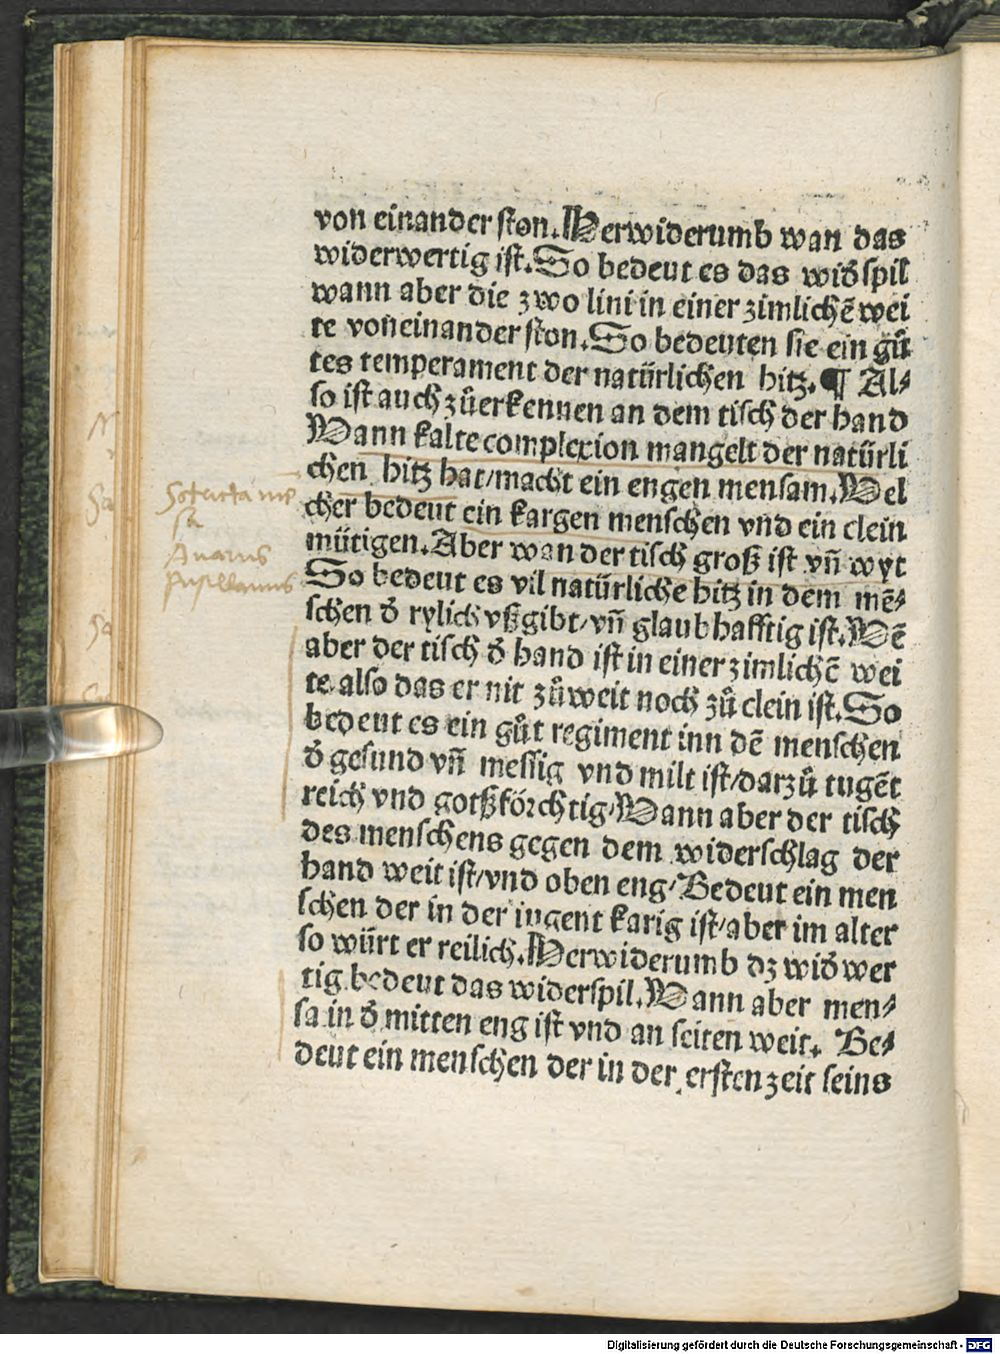 von einander ston. Herwiderumb wan das
widerwertig ist. So bedeut es das widᷣspil
wann aber die zwo lini in einer zimlichē wei
te voneinander ston. So bedeuten sie ein gůͦ
tes temperament der natürlichen hitz. ¶ Al⸗
so ist auch zůerkennen an dem tisch der hand
Wann kalte complexion mangelt der natürli
chen hitz hat/macht ein engen mensam. Wel
cher bedeut ein kargen menschen vnd ein clein
mütigen. Aber wan der tisch groß ist vn̄ wyt
So bedeut es vil natürliche hitz in dem mē⸗
schen dᷣ rylich vßgibt/vn̄ glaubhafftig ist. Wē
aber der tisch dᷣ hand ist in einer zimlichē wei
te also das er nit zů weit noch zů clein ist. So
bedeut es ein gůt regiment inn dē menschen
dᷣ gesund vn̄ messig vnd milt ist/darzů tugēt
reich vnd gotßförchtig/Wann aber der tisch
des menschens gegen dem widerschlag der
hand weit ist/vnd oben eng/Bedeut ein men
schen der in der iugent karig ist/aber im alter
so würt er reilich. Herwiderumb dz widᷣwer
tig bedeut das widerspil. Wann aber men⸗
sa in dᷣ mitten eng ist vnd an seiten weit. Be⸗
deut ein menschen der in der ersten zeit seins
Avarus
Pusillanimis
Digitalisierung gefördert durch die Deutsche Forschungsgemeinschaft - DFG